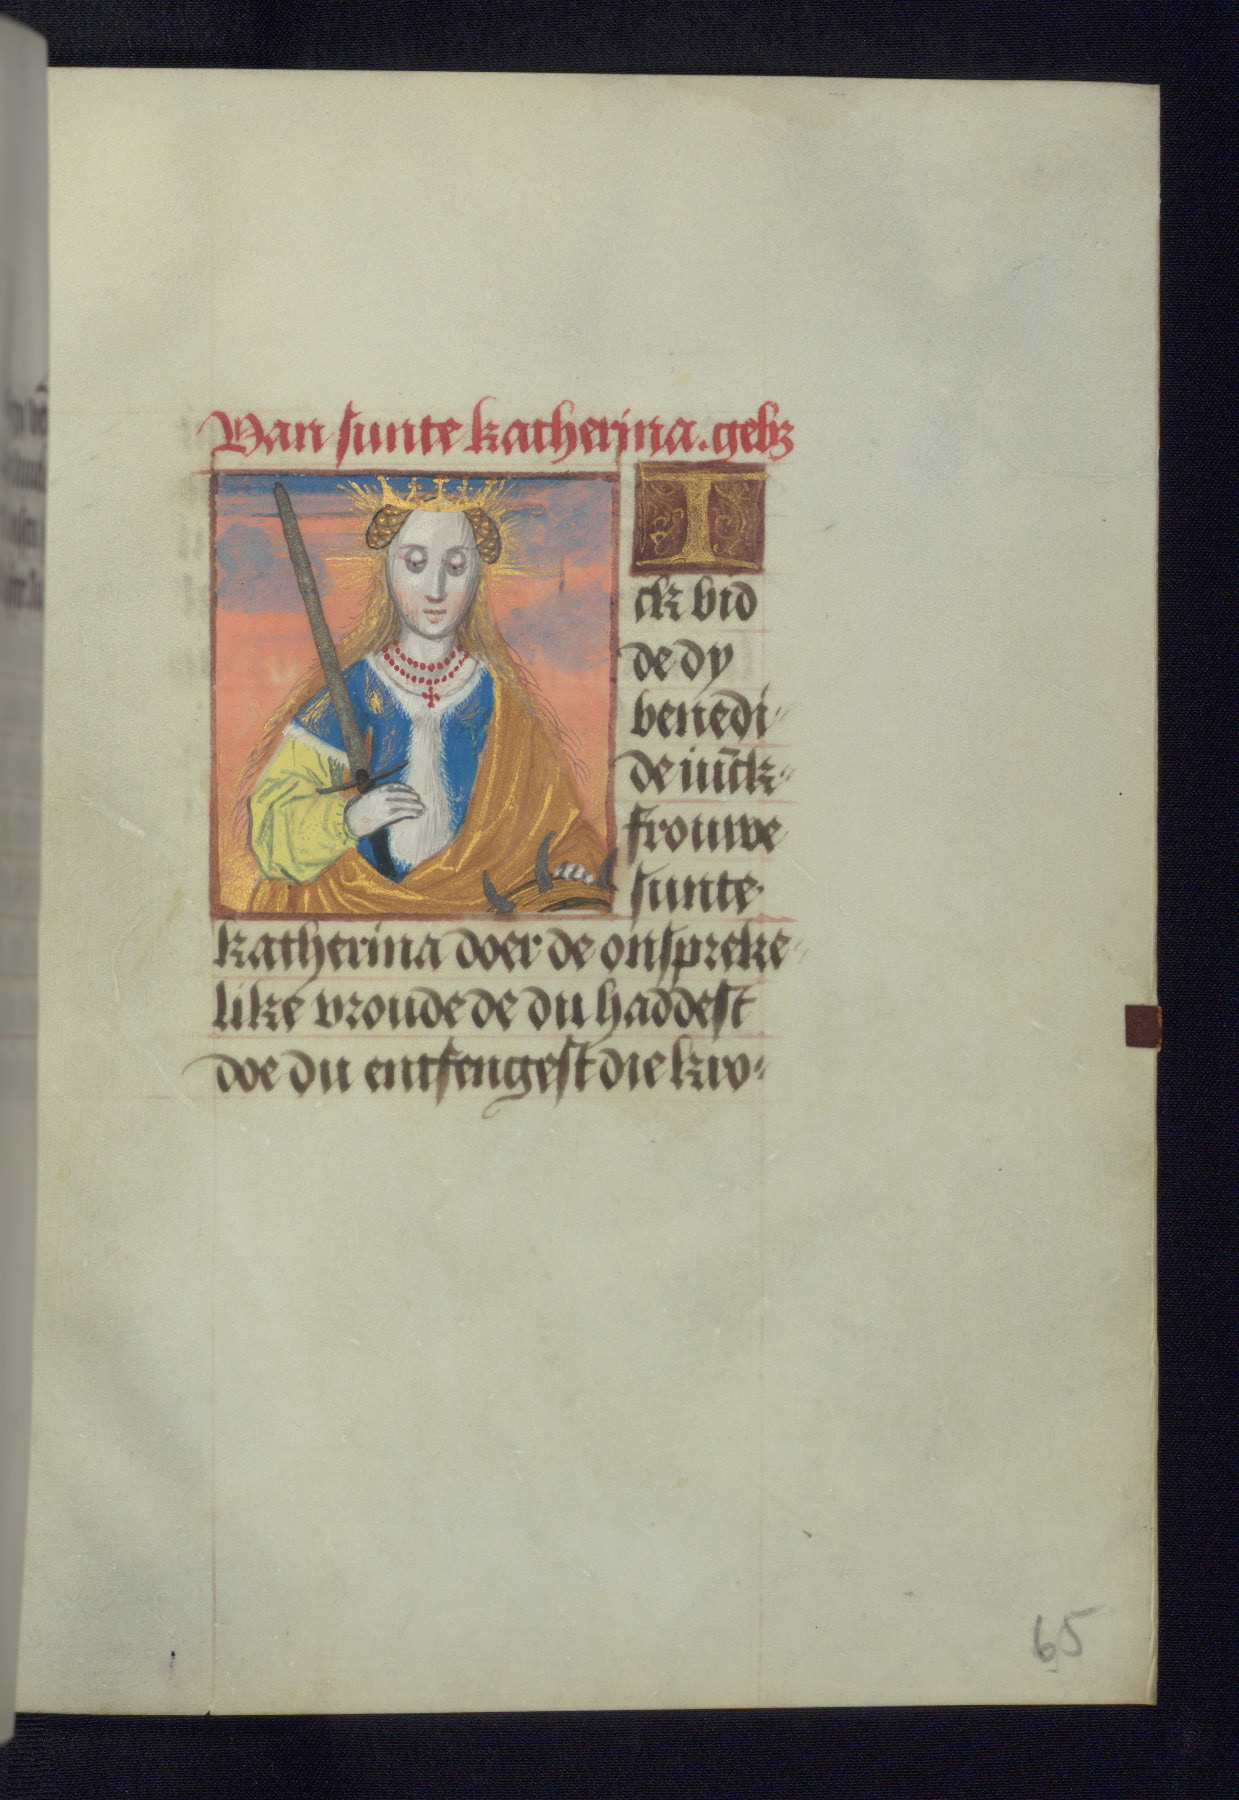 Van sunte katherina. gebz
I
ck bid
de dy
benedi-
de iūck-
frouwe
sunte
katherina doer de onspreke-
like vroude de du haddest
doe du entfengest die kro-
65